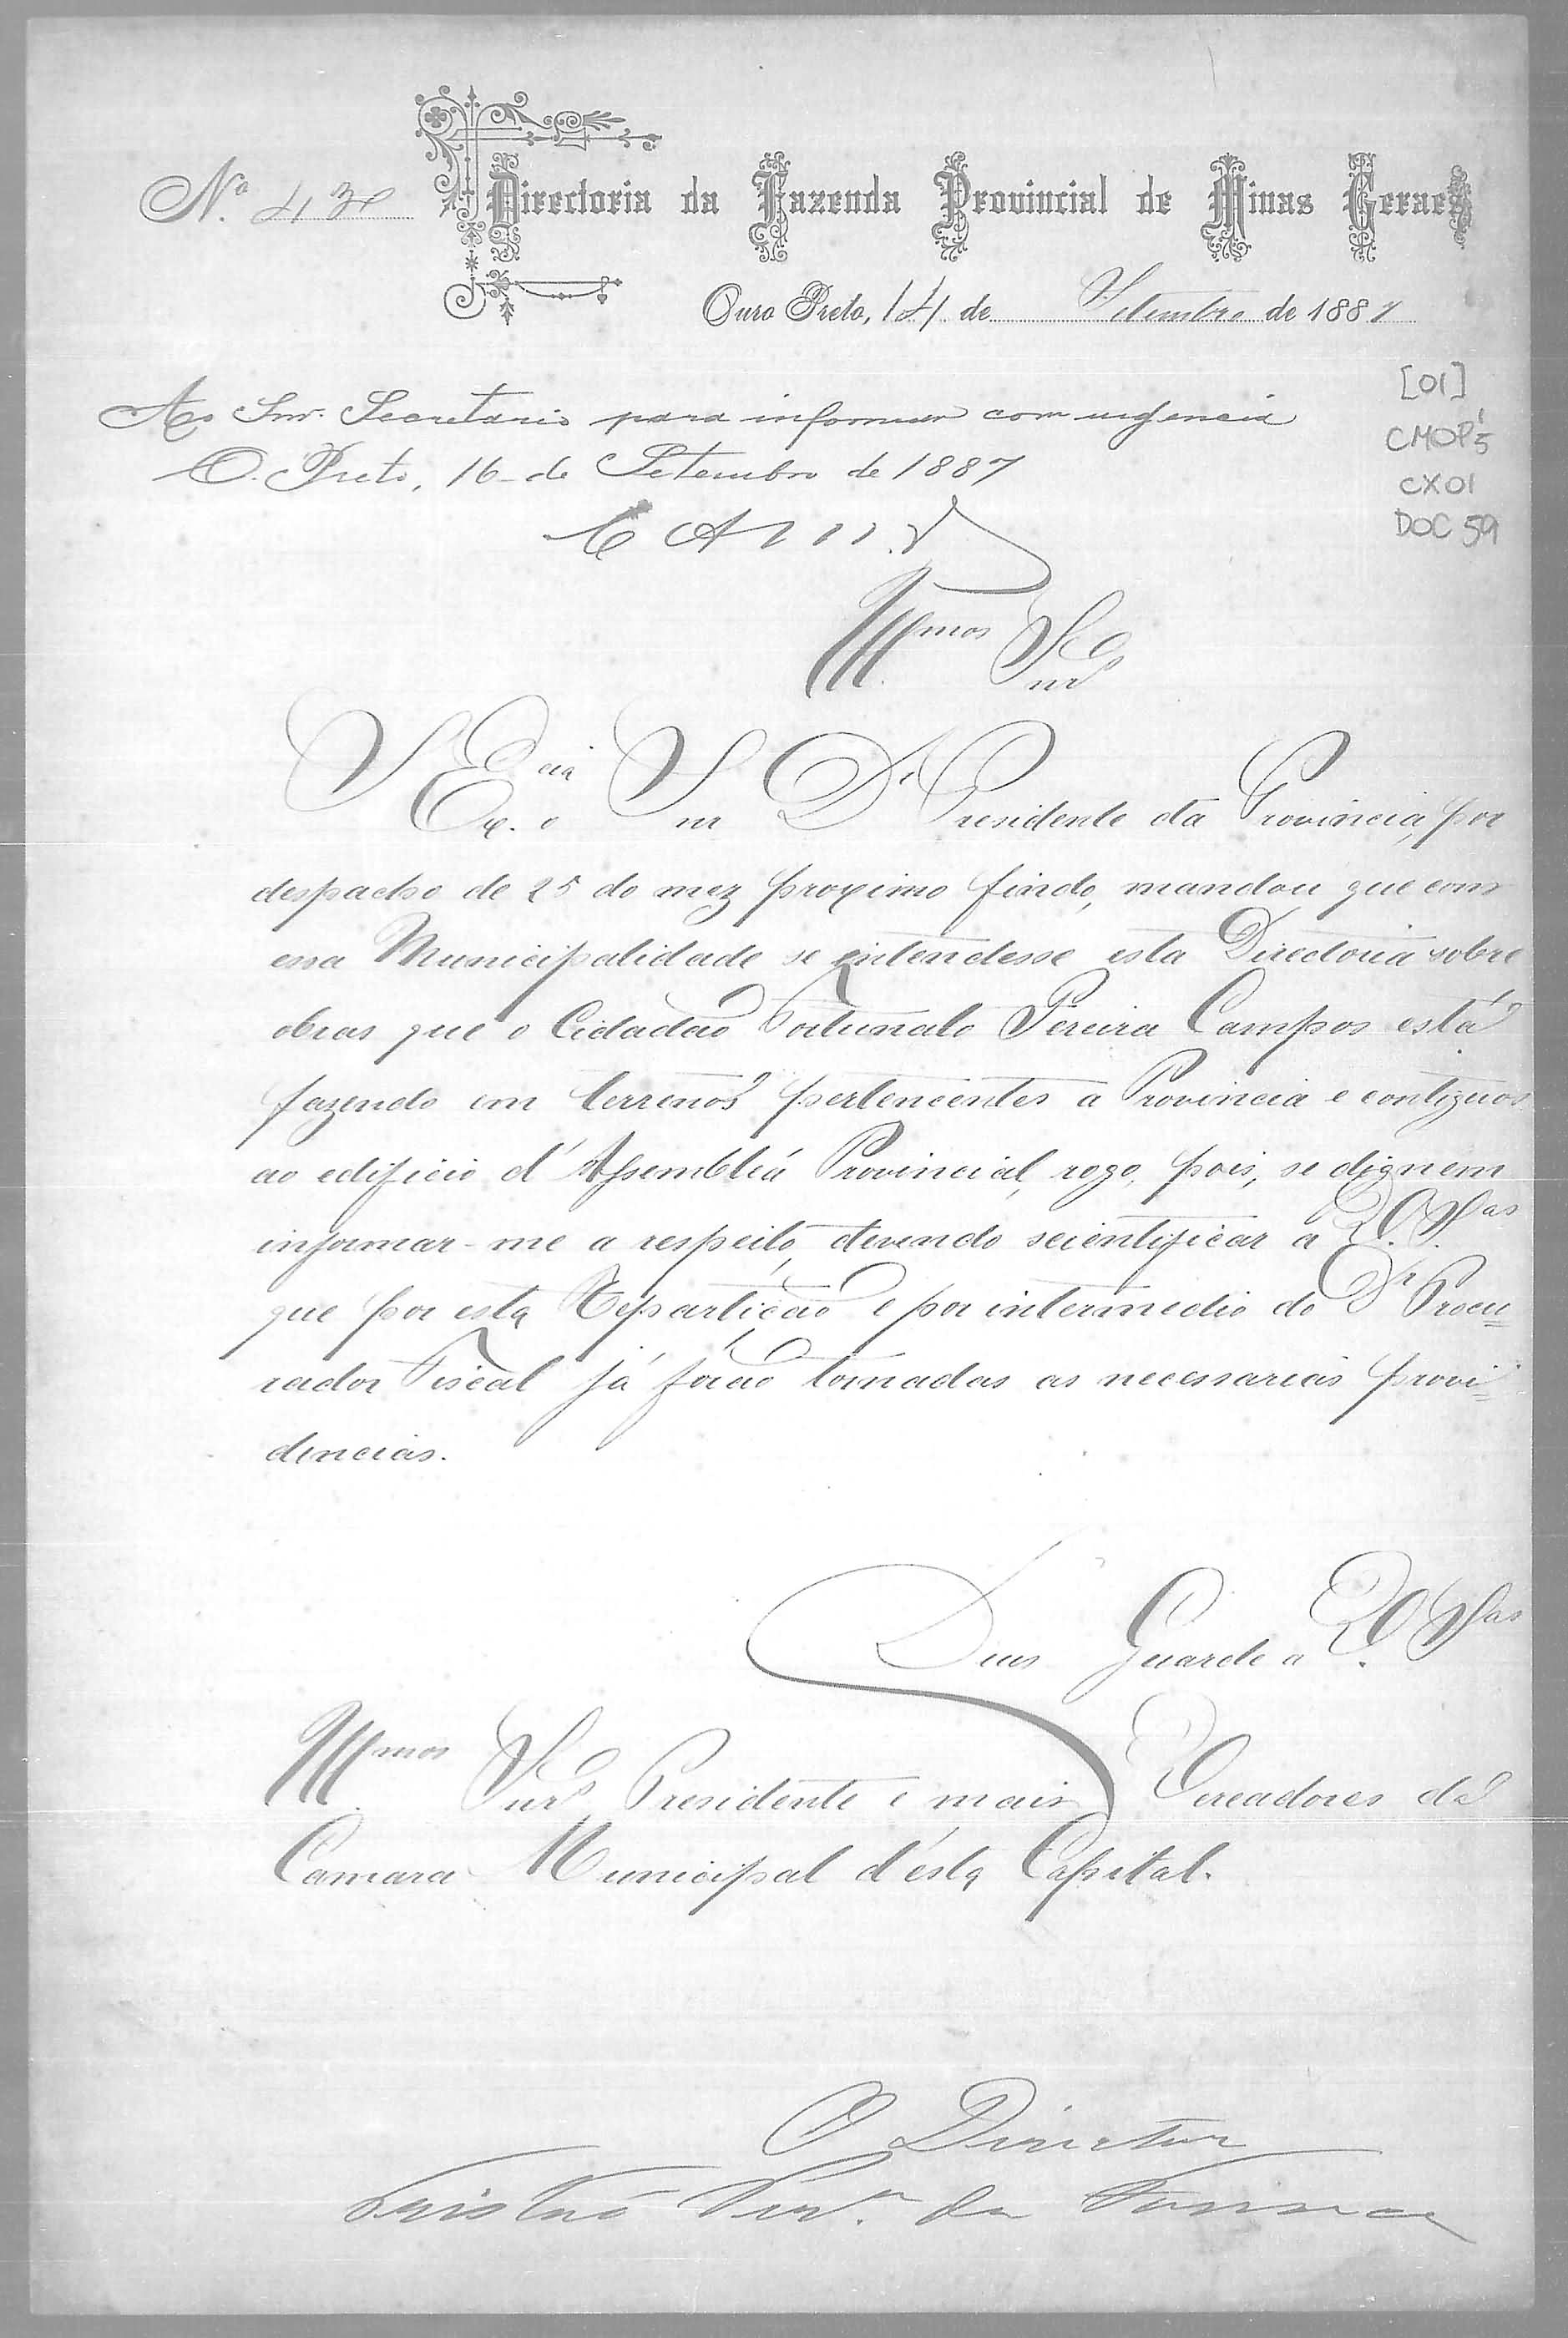 Nº 43
Directoria da Fazenda Provincial de Minas Geraes
Ouro Preto, 14 de Setembro de 1887
[01]
CMOP
CX01
DOC 59
Ao Snr. Secretario para informar com urgencia
O. Preto, 16 de Setembro de 1887
Illmos Snrs
S Excia o Snr Dr Presidente da Provincia, por
despacho de 25 do mez proximo findo, mandou que com
essa Municipalidade se entendesse esta Directoria sobre
obras que o Cidadão Fortunato Pereira Campos está
fazendo em terrenos pertencentes a Provincia e contiguos
ao edificio d'Assembléa Provincial, rogo, pois, se dignem
informar-me a respeito, devendo scientificar a V.V. Sas
que por esta Repartição e por intermedio do Dr Procu=
rador Fiscal já forão tomadas as necessarias provi=
dencias.
Deus Guarde a V.V. Sas
Illmos Snrs Presidente e mais Vereadores da
Camara Municipal d'ésta Capital.
O Director
Tristão Per.ª da Fonseca